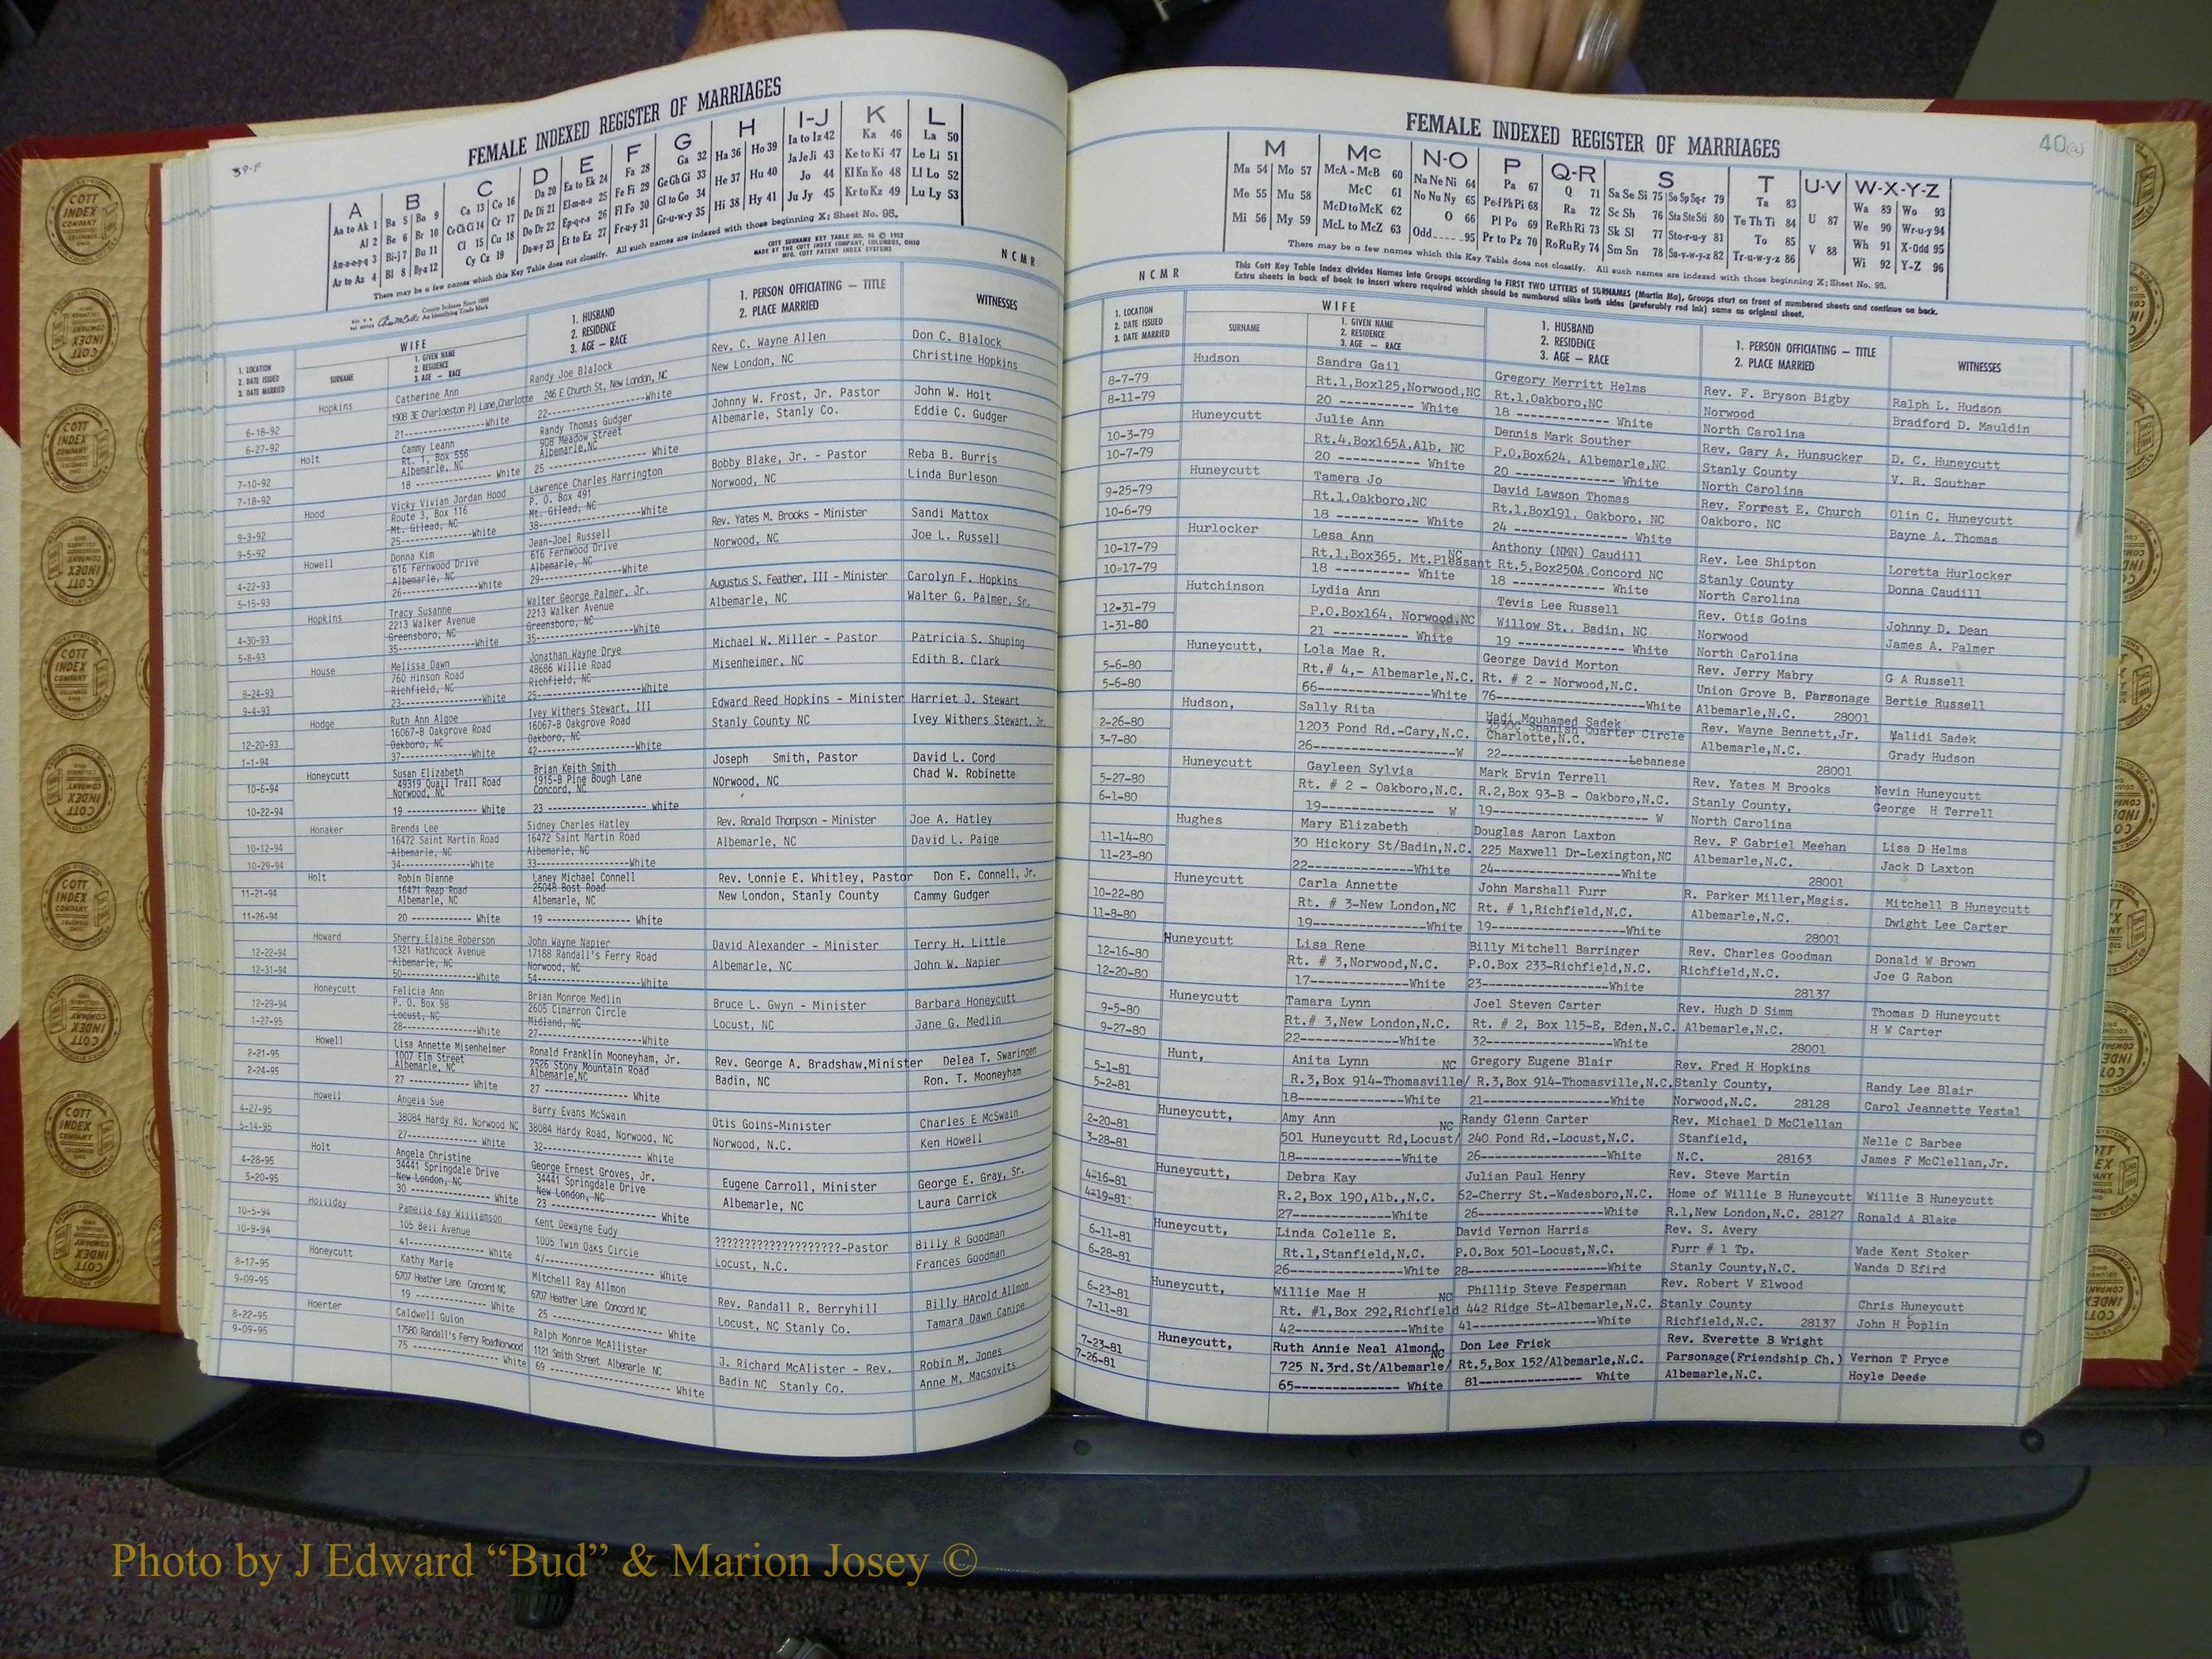 39-F
FEMALE INDEXED REGISTER OF MARRIAGES
A B C D E F G H I-J K L
Aa to Ak 1 Ba 5 Bo 9 Ca 13 Co 16 Da 20 Ea to Ek 24 Fa 28 Ga 32 Ha 36 Ho 39 Ia to Iz 42 Ka 46 La 50
Al 2 Be 6 Br 10 Ce Ch Ci 14 Cr 17 De Di 21 El-m-n-o 25 Fe Fi 29 Ge Gh Gi 33 He 37 Hu 40 Ja Je Ji 43 Ke to Ki 47 Le Li 51
Am-n-o-p-q 3 Bi-j 7 Bu 11 Cl 15 Cu 18 Do Dr 22 Ep-q-r-s 26 Fl Fo 30 Gl to Go 34 Hi 38 Hy 41 Jo 44 Kl Kn Ko 48 Ll Lo 52
Ar to Az 4 Bl 8 By-z 12 Cy Cz 19 Du-w-y 23 Et to Ez 27 Fr-u-y 31 Gr-u-w-y 35 Ju Jy 45 Kr to Kz 49 Lu Ly 53
There may be a few names which this Key Table does not classify. All such names are indexed with those beginning X; Sheet No. 95.
COTT SURNAME KEY TABLE NO. 96 © 1952
MADE BY THE COTT INDEX COMPANY, COLUMBUS, OHIO
MFG. COTT PATENT INDEX SYSTEMS
NCMR
County Indexes Since 1888
An Identifying Trade Mark
1. LOCATION
2. DATE ISSUED
3. DATE MARRIED
WIFE
SURNAME
1. GIVEN NAME
2. RESIDENCE
3. AGE — RACE
1. HUSBAND
2. RESIDENCE
3. AGE — RACE
1. PERSON OFFICIATING — TITLE
2. PLACE MARRIED
WITNESSES
Hopkins Catherine Ann Randy Joe Blalock Rev. C. Wayne Allen Don C. Blalock
6-18-92 1908 3E Charloeston Pl Lane,Charlotte 246 E Church St, New London, NC New London, NC Christine Hopkins
6-27-92 21--------------White 22--------------------White
Holt Cammy Leann Randy Thomas Gudger Johnny W. Frost, Jr. Pastor John W. Holt
7-10-92 Rt. 1, Box 556 908 Meadow Street Albemarle, Stanly Co. Eddie C. Gudger
Albemarle, NC Albemarle,NC
7-18-92 18 ------------- White 25 -------------------- White
Hood Vicky Vivian Jordan Hood Lawrence Charles Harrington Bobby Blake, Jr. - Pastor Reba B. Burris
9-3-92 Route 3, Box 116 P. O. Box 491 Norwood, NC Linda Burleson
Mt. Gilead, NC Mt. Gilead, NC
9-5-92 25--------------White 38--------------------White
Howell Donna Kim Jean-Joel Russell Rev. Yates M. Brooks - Minister Sandi Mattox
4-22-93 616 Fernwood Drive 616 Fernwood Drive Norwood, NC Joe L. Russell
Albemarle, NC Albemarle, NC
5-15-93 26--------------White 29--------------------White
Hopkins Tracy Susanne Walter George Palmer, Jr. Augustus S. Feather, III - Minister Carolyn F. Hopkins
4-30-93 2213 Walker Avenue 2213 Walker Avenue Albemarle, NC Walter G. Palmer, Sr.
Greensboro, NC Greensboro, NC
5-8-93 35--------------White 35--------------------White
House Melissa Dawn Jonathan Wayne Drye Michael W. Miller - Pastor Patricia S. Shuping
8-24-93 760 Hinson Road 48686 Willie Road Misenheimer, NC Edith B. Clark
Richfield, NC Richfield, NC
9-4-93 23--------------White 25--------------------White
Hodge Ruth Ann Algoe Ivey Withers Stewart, III Edward Reed Hopkins - Minister Harriet J. Stewart
12-20-93 16067-B Oakgrove Road 16067-B Oakgrove Road Stanly County NC Ivey Withers Stewart, Jr.
Oakboro, NC Oakboro, NC
1-1-94 37--------------White 42--------------------White
Honeycutt Susan Elizabeth Brian Keith Smith Joseph Smith, Pastor David L. Cord
10-6-94 49319 Quail Trail Road 1915-B Pine Bough Lane NOrwood, NC Chad W. Robinette
Norwood, NC Concord, NC
10-22-94 19 ------------- White 23 -------------------- white
Honaker Brenda Lee Sidney Charles Hatley Rev. Ronald Thompson - Minister Joe A. Hatley
10-12-94 16472 Saint Martin Road 16472 Saint Martin Road Albemarle, NC David L. Paige
Albemarle, NC Albemarle, NC
10-29-94 34--------------White 33--------------------White
Holt Robin Dianne Laney Michael Connell Rev. Lonnie E. Whitley, Pastor Don E. Connell, Jr.
11-21-94 16471 Reap Road 25048 Bost Road New London, Stanly County Cammy Gudger
Albemarle, NC Albemarle, NC
11-26-94 20 ------------- White 19 ------------------ White
Howard Sherry Elaine Roberson John Wayne Napier David Alexander - Minister Terry H. Little
12-22-94 1321 Hathcock Avenue 17188 Randall's Ferry Road Albemarle, NC John W. Napier
Albemarle, NC Norwood, NC
12-31-94 50--------------White 54--------------------White
Honeycutt Felicia Ann Brian Monroe Medlin Bruce L. Gwyn - Minister Barbara Honeycutt
12-29-94 P. O. Box 98 2605 Cimarron Circle Locust, NC Jane G. Medlin
Locust, NC Midland, NC
1-27-95 28--------------White 27--------------------White
Howell Lisa Annette Misenheimer Ronald Franklin Mooneyham, Jr. Rev. George A. Bradshaw,Minister Delea T. Swaringen
2-21-95 1007 Elm Street 2526 Stony Mountain Road Badin, NC Ron. T. Mooneyham
Albemarle, NC Albemarle,NC
2-24-95 27 ------------- White 27 ------------------ White
Howell Angela Sue Barry Evans McSwain Otis Goins-Minister Charles E McSwain
4-27-95 38084 Hardy Rd. Norwood NC 38084 Hardy Road, Norwood, NC Norwood, N.C. Ken Howell
5-14-95 27-------------- White 32-------------------- White
Holt Angela Christine George Ernest Groves, Jr. Eugene Carroll, Minister George E. Gray, Sr.
4-28-95 34441 Springdale Drive 34441 Springdale Drive Albemarle, NC Laura Carrick
New London, NC New London, NC
5-20-95 30 -------------- White 23 -------------------- White
Holliday Pamella Kay Williamson Kent Dewayne Eudy ????????????????????-Pastor Billy R Goodman
10-5-94 105 Bell Avenue 1005 Twin Oaks Circle Locust, N.C. Frances Goodman
10-9-94 41-------------- White 47-------------------- White
Honeycutt Kathy Marie Mitchell Ray Allmon Rev. Randall R. Berryhill Billy HArold Allmon
8-17-95 6707 Heather Lane Concord NC 6707 Heather Lane Concord NC Locust, NC Stanly Co. Tamara Dawn Canipe
9-09-95 19 -------------- White 25 -------------------- White
Hoerter Caldwell Guion Ralph Monroe McAllister J. Richard McAlister - Rev. Robin M. Jones
8-22-95 17580 Randall's Ferry RoadNorwood 1121 Smith Street Albemarle NC Badin NC Stanly Co. Anne M. Macsovits
9-09-95 75 ------------------ White 69 -------------------- White
40(a)
FEMALE INDEXED REGISTER OF MARRIAGES
M Mc N-O P Q-R S T U-V W-X-Y-Z
Ma 54 Mo 57 McA - McB 60 Na Ne Ni 64 Pa 67 Q 71 Sa Se Si 75 So Sp Sq-r 79 Ta 83 U 87 Wa 89 Wo 93
Me 55 Mu 58 McC 61 No Nu Ny 65 Pe-f Ph Pi 68 Ra 72 Sc Sh 76 Sta Ste Sti 80 Te Th Ti 84 V 88 We 90 Wr-u-y 94
Mi 56 My 59 McD to McK 62 O 66 Pl Po 69 Re Rh Ri 73 Sk Sl 77 Sto-r-u-y 81 To 85 Wh 91 X-Odd 95
McL to McZ 63 Odd 95 Pr to Pz 70 Ro Ru Ry 74 Sm Sn 78 Su-v-w-y-z 82 Tr-u-w-y-z 86 Wi 92 Y-Z 96
There may be a few names which this Key Table does not classify. All such names are indexed with those beginning X; Sheet No. 95.
NCMR
This Cott Key Table Index divides Names into Groups according to FIRST TWO LETTERS of SURNAMES (Martin Ma), Groups start on front of numbered sheets and continue on back.
Extra sheets in back of book to insert where required which should be numbered alike both sides (preferably red ink) same as original sheet.
1. LOCATION
2. DATE ISSUED
3. DATE MARRIED
WIFE
SURNAME
1. GIVEN NAME
2. RESIDENCE
3. AGE — RACE
1. HUSBAND
2. RESIDENCE
3. AGE — RACE
1. PERSON OFFICIATING — TITLE
2. PLACE MARRIED
WITNESSES
Hudson Sandra Gail Gregory Merritt Helms Rev. F. Bryson Bigby Ralph L. Hudson
8-7-79 Rt.1,Box125,Norwood,NC Rt.1,Oakboro,NC Norwood Bradford D. Mauldin
8-11-79 20 ---------- White 18 ------------ White North Carolina
Huneycutt Julie Ann Dennis Mark Souther Rev. Gary A. Hunsucker D. C. Huneycutt
10-3-79 Rt.4,Box165A,Alb, NC P.O.Box624, Albemarle,NC Stanly County V. R. Souther
10-7-79 20 ----------- White 20 ------------ White North Carolina
Huneycutt Tamera Jo David Lawson Thomas Rev. Forrest E. Church Olin C. Huneycutt
9-25-79 Rt.1,Oakboro,NC Rt.1,Box191, Oakboro, NC Oakboro, NC Bayne A. Thomas
10-6-79 18 ----------- White 24 -------------- White
Hurlocker Lesa Ann Anthony (NMN) Caudill Rev. Lee Shipton Loretta Hurlocker
10-17-79 Rt.1,Box365, Mt.Pleasant NC Rt.5,Box250A,Concord NC Stanly County Donna Caudill
10=17-79 18 ---------- White 18 ------------ White North Carolina
Hutchinson Lydia Ann Tevis Lee Russell Rev. Otis Goins Johnny D. Dean
12-31-79 P.O.Box164, Norwood,NC Willow St., Badin, NC Norwood James A. Palmer
1-31-80 21 ---------- White 19 -------------- White North Carolina
Huneycutt, Lola Mae R. George David Morton Rev. Jerry Mabry G A Russell
5-6-80 Rt.# 4,- Albemarle,N.C. Rt. # 2 - Norwood,N.C. Union Grove B. Parsonage Bertie Russell
5-6-80 66----------------White 76------------------White Albemarle,N.C. 28001
Hudson, Sally Rita Hadi Mouhamed Sadek Rev. Wayne Bennett,Jr. Walidi Sadek
2-26-80 1203 Pond Rd.-Cary,N.C. 3530C Spanish Quarter Circle Albemarle,N.C. Grady Hudson
Charlotte,N.C.
3-7-80 26-------------------W 22----------------Lebanese 28001
Huneycutt Gayleen Sylvia Mark Ervin Terrell Rev. Yates M Brooks Nevin Huneycutt
5-27-80 Rt. # 2 - Oakboro,N.C. R.2,Box 93-B - Oakboro,N.C. Stanly County, George H Terrell
6-1-80 19----------------- W 19-------------------- W North Carolina
Hughes Mary Elizabeth Douglas Aaron Laxton Rev. F Gabriel Meehan Lisa D Helms
11-14-80 30 Hickory St/Badin,N.C. 225 Maxwell Dr-Lexington,NC Albemarle,N.C. Jack D Laxton
11-23-80 22--------------White 24------------------White 28001
Huneycutt Carla Annette John Marshall Furr R. Parker Miller,Magis. Mitchell B Huneycutt
10-22-80 Rt. # 3-New London,NC Rt. # 1,Richfield,N.C. Albemarle,N.C. Dwight Lee Carter
11-8-80 19----------------White 19------------------White 28001
Huneycutt Lisa Rene Billy Mitchell Barringer Rev. Charles Goodman Donald W Brown
12-16-80 Rt. # 3,Norwood,N.C. P.O.Box 233-Richfield,N.C. Richfield,N.C. Joe G Rabon
12-20-80 17--------------White 23------------------White 28137
Huneycutt Tamara Lynn Joel Steven Carter Rev. Hugh D Simm Thomas D Huneycutt
9-5-80 Rt.# 3,New London,N.C. Rt. # 2, Box 115-E, Eden,N.C. Albemarle,N.C. H W Carter
9-27-80 22--------------White 32------------------White 28001
Hunt, Anita Lynn Gregory Eugene Blair Rev. Fred H Hopkins Randy Lee Blair
5-1-81 R.3,Box 914-Thomasville/ NC R.3,Box 914-Thomasville,N.C. Stanly County, Carol Jeannette Vestal
5-2-81 18--------------White 21------------------White Norwood,N.C. 28128
Huneycutt, Amy Ann Randy Glenn Carter Rev. Michael D McClellan Nelle C Barbee
2-20-81 501 Huneycutt Rd,Locust/ NC 240 Pond Rd.-Locust,N.C. Stanfield, James F McClellan,Jr.
3-28-81 18--------------White 26------------------White N.C. 28163
Huneycutt, Debra Kay Julian Paul Henry Rev. Steve Martin Willie B Huneycutt
4-16-81 R.2,Box 190,Alb.,N.C. 62-Cherry St.-Wadesboro,N.C. Home of Willie B Huneycutt Ronald A Blake
4-19-81 27--------------White 26------------------White R.1,New London,N.C. 28127
Huneycutt, Linda Colelle E. David Vernon Harris Rev. S. Avery Wade Kent Stoker
6-11-81 Rt.1,Stanfield,N.C. P.O.Box 501-Locust,N.C. Furr # 1 Tp. Wanda D Efird
6-28-81 26--------------White 28------------------White Stanly County,N.C.
Huneycutt, Willie Mae H Phillip Steve Fesperman Rev. Robert V Elwood Chris Huneycutt
6-23-81 Rt. #1,Box 292,Richfield NC 442 Ridge St-Albemarle,N.C. Stanly County John H Poplin
7-11-81 42--------------White 41------------------White Richfield,N.C. 28137
Huneycutt, Ruth Annie Neal Almond Don Lee Frick Rev. Everette B Wright Vernon T Pryce
7-23-81 725 N.3rd.St/Albemarle/ NC Rt.5,Box 152/Albemarle,N.C. Parsonage(Friendship Ch.) Hoyle Deese
7-26-81 65-------------- White 81-------------- White Albemarle,N.C.
COTT INDEX COMPANY
Photo by J Edward “Bud” & Marion Josey ©